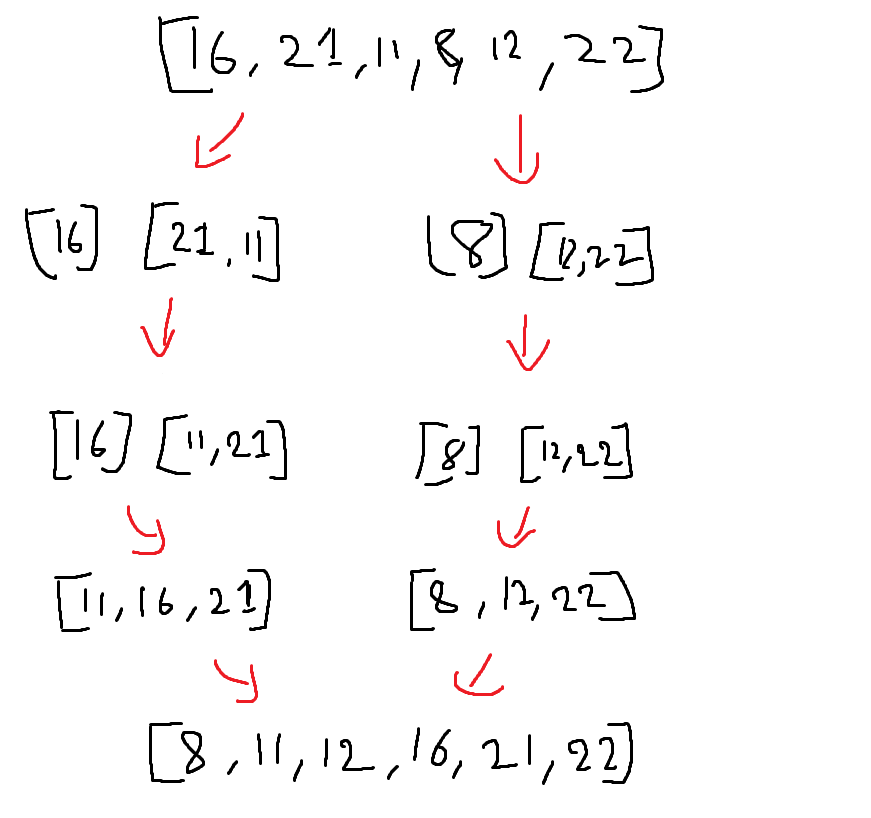 [16, 21, 11, 8, 12, 22]
[16] [21, 11] [8] [12,22]
[16] [11,21] [8] [12,22]
[11, 16, 21] [8, 12, 22]
[8, 11, 12, 16, 21, 22]